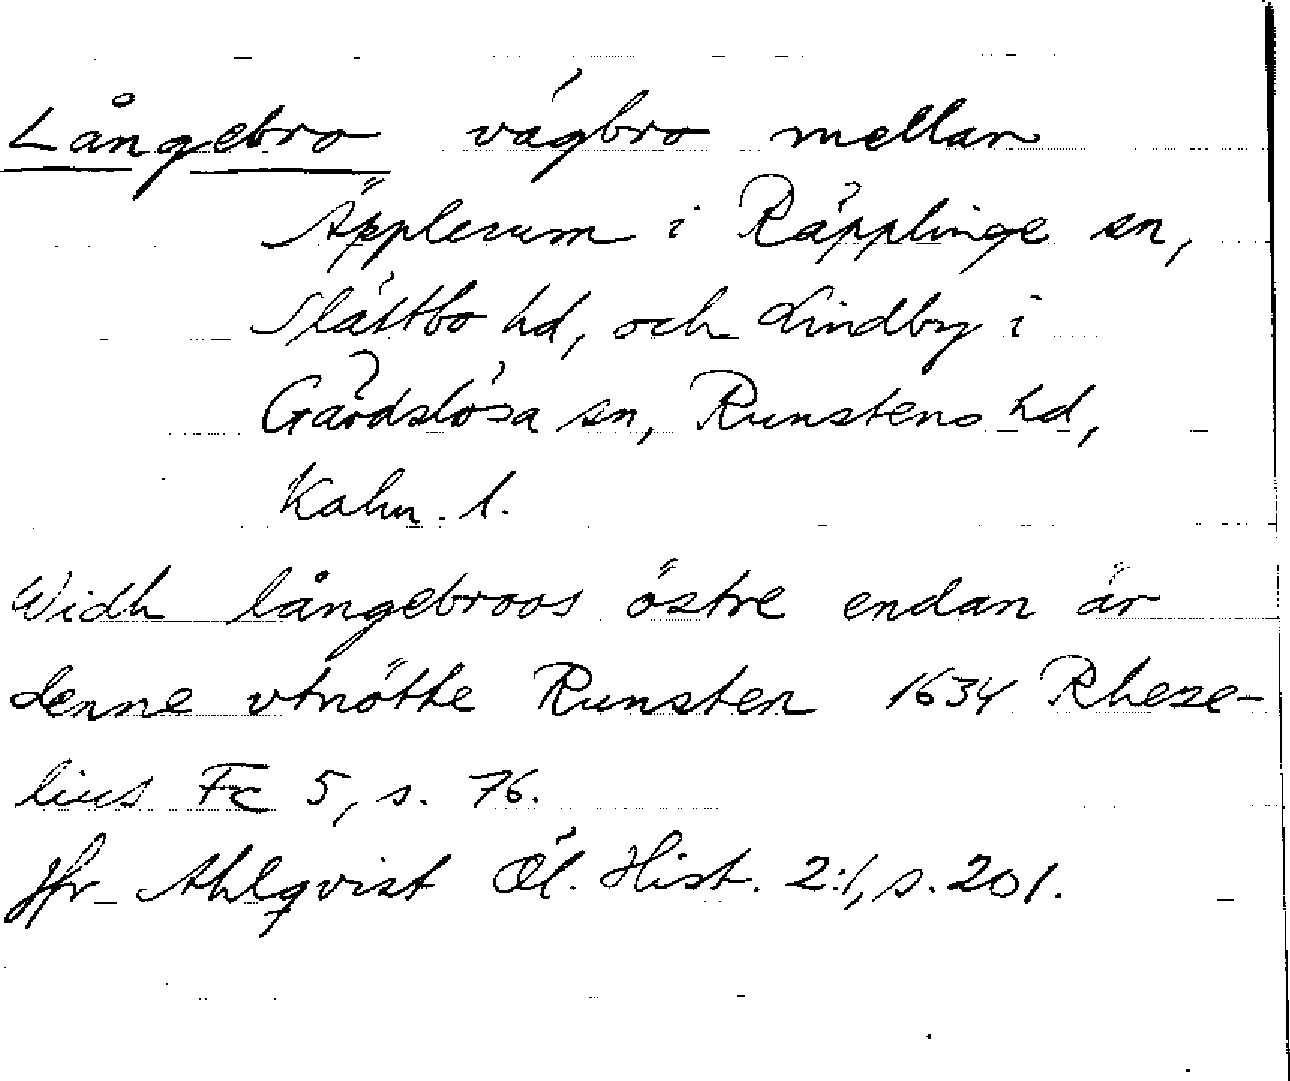 Långebro vägbro mellan
Äpplerum i Räpplinge sn,
Slättbo hd, och Lindby i
Gärdslösa sn, Runstens hd,
Kalm. l.
Widh långebroos östre endan är
denne vtnötte Runsten 1634 Rheze-
lius Fc 5, s. 76.
Jfr Ahlqvist Öl. Hist. 2:1, s. 201.